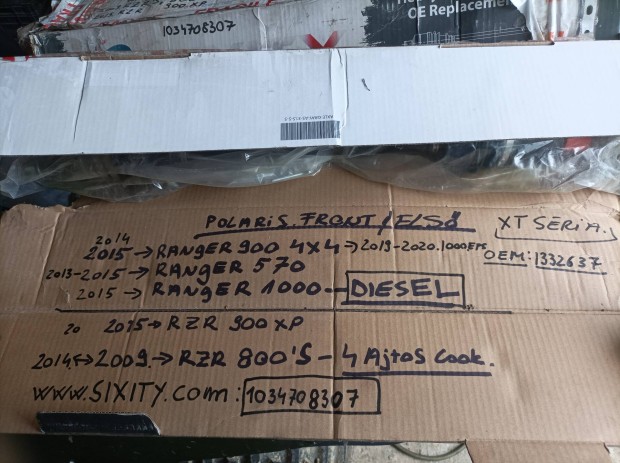 OE Replacement
500.KP
1034708307
POLARIS. FRONT / ELSŐ
XT SERIA.
2014
2015 → RANGER 900 4X4 → 2019-2020.1000 EPS
OEM: 1332637
2013-2015 → RANGER 570
2015 → RANGER 1000 - DIESEL
20 2015 → RZR 900 XP
2014 ↔ 2009. → RZR 800'S - 4 Ajtos Cook.
www.SIXITY.com: 1034708307